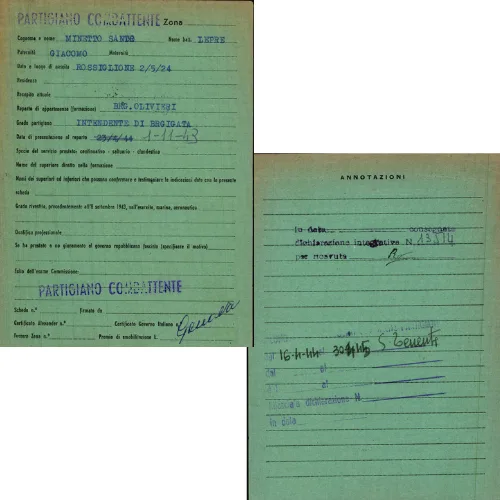 PARTIGIANO COMBATTENTE Zona
Cognome e nome MINETTO SANDG Nome batt. LEPRE
Paternità GIACOMO Maternità
Data e luogo di nascita ROSSIGLIONE 2/5/24
Residenza
Recapito attuale
Reparto di appartenenza (formazione) BRG.OLIVIERI
Grado partigiano INTENDENTE DI BRGIGATA
Data di presentazione al reparto 23/4/44 1-11-43
Specie del servizio prestato: continuativo - saltuario - clandestino
Nome del superiore diretto nella formazione
Nomi dei superiori od inferiori che possono confermare e testimoniare le indicazioni date con la presente
scheda
Grado rivestito, precedentemente all'8 settembre 1943, nell'esercito, marina, aeronautica.
Qualifica professionale
Se ha prestato o no giuramento al governo repubblicano fascista (specificare il motivo).
Esito dell'esame Commissione
PARTIGIANO COMBATTENTE
Scheda n.° firmata da
Certificato Alexander n.° Certificato Governo Italiano n.°
Tessera Zona n.° Premio di smobilitazione L.
Genova
ANNOTAZIONI
In data consegnata
dichiarazione integrativa N. 13814
per ricevuta
dal 16-4-44 al 30-4-45 S Tenente
dal al
dal al
dichiarazione N
in data